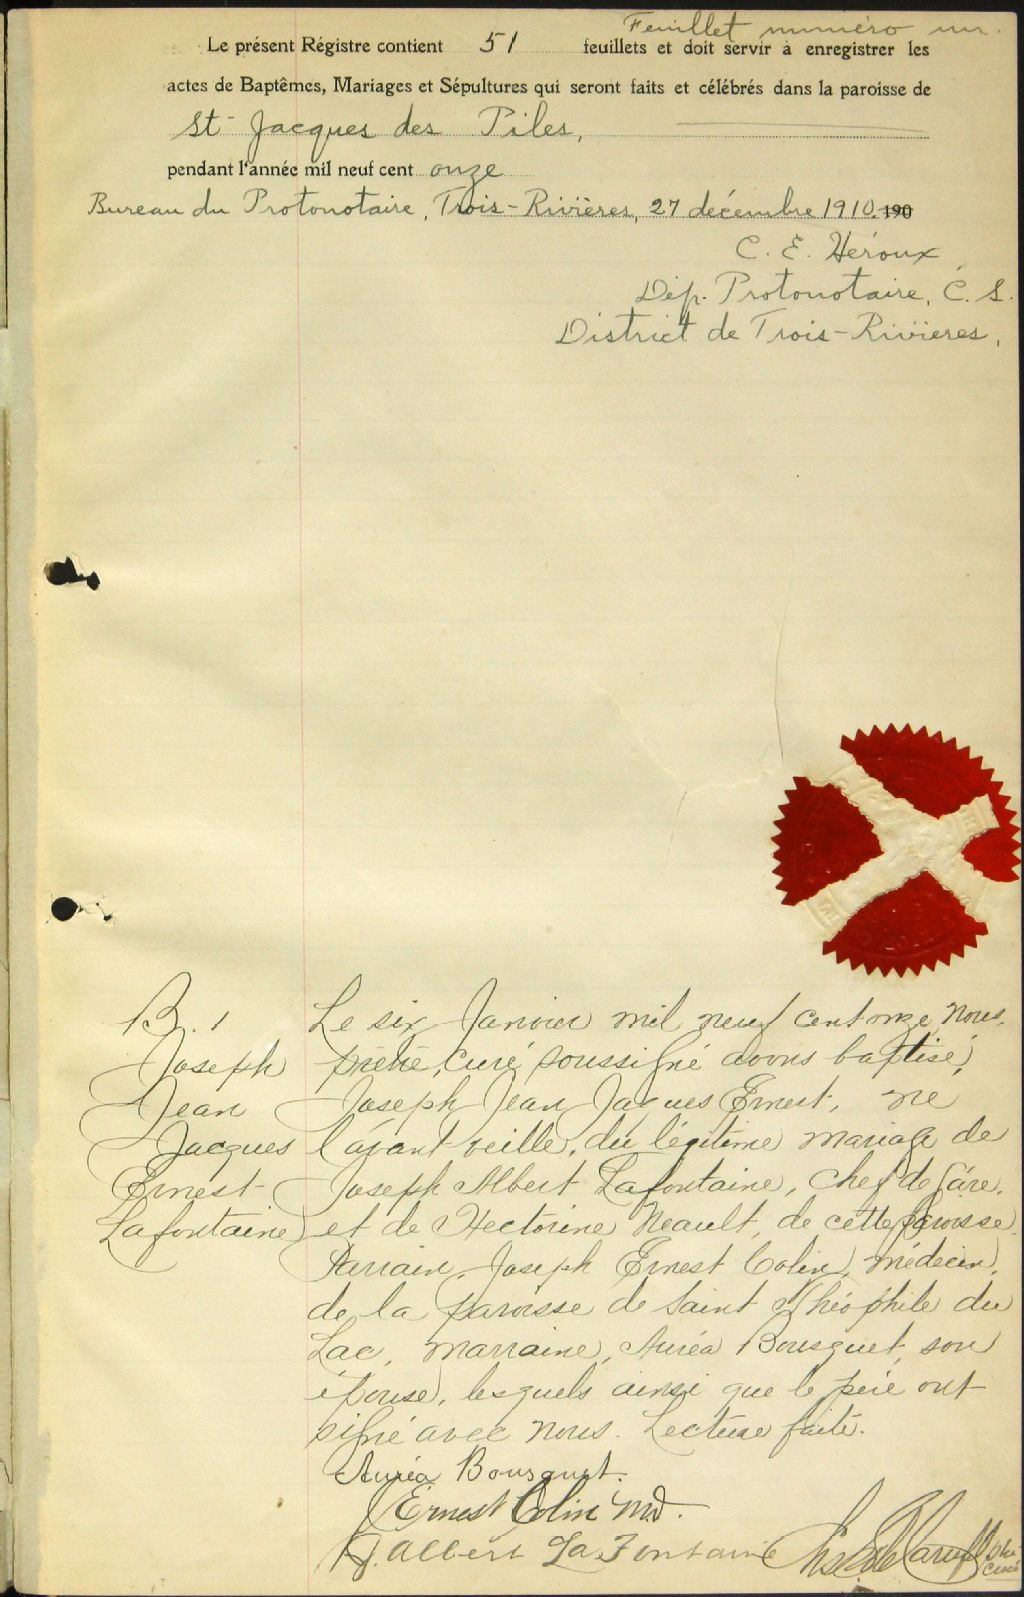 Feuillet numéro un.
Le présent Régistre contient 51 feuillets et doit servir à enregistrer les
actes de Baptêmes, Mariages et Sépultures qui seront faits et célébrés dans la paroisse de
St Jacques des Piles,
pendant l'année mil neuf cent onze
Bureau du Protonotaire, Trois-Rivières, 27 décembre 1910. 190
C. E. Héroux
Dép. Protonotaire, C. S.
District de Trois-Rivières,
B. 1
Joseph
Jean
Jacques
Ernest
Lafontaine
Le six Janvier mil neuf cent onze Nous,
prêtre, curé soussigné avons baptisé,
Joseph Jean Jaques Ernest, né
l'avant veille, du légitime mariage de
Joseph Albert Lafontaine, Chef de Gare,
et de Hectorine Neault, de cette paroisse.
Parrain, Joseph Ernest Colin, médecin,
de la paroisse de Saint Théophile du
Lac, Marraine, Auréa Bousquet, son
épouse, lesquels ainsi que le père ont
signé avec nous. Lecture faite.
Auréa Bousquet.
Ernest Colin M.D.
J. Albert LaFontaine